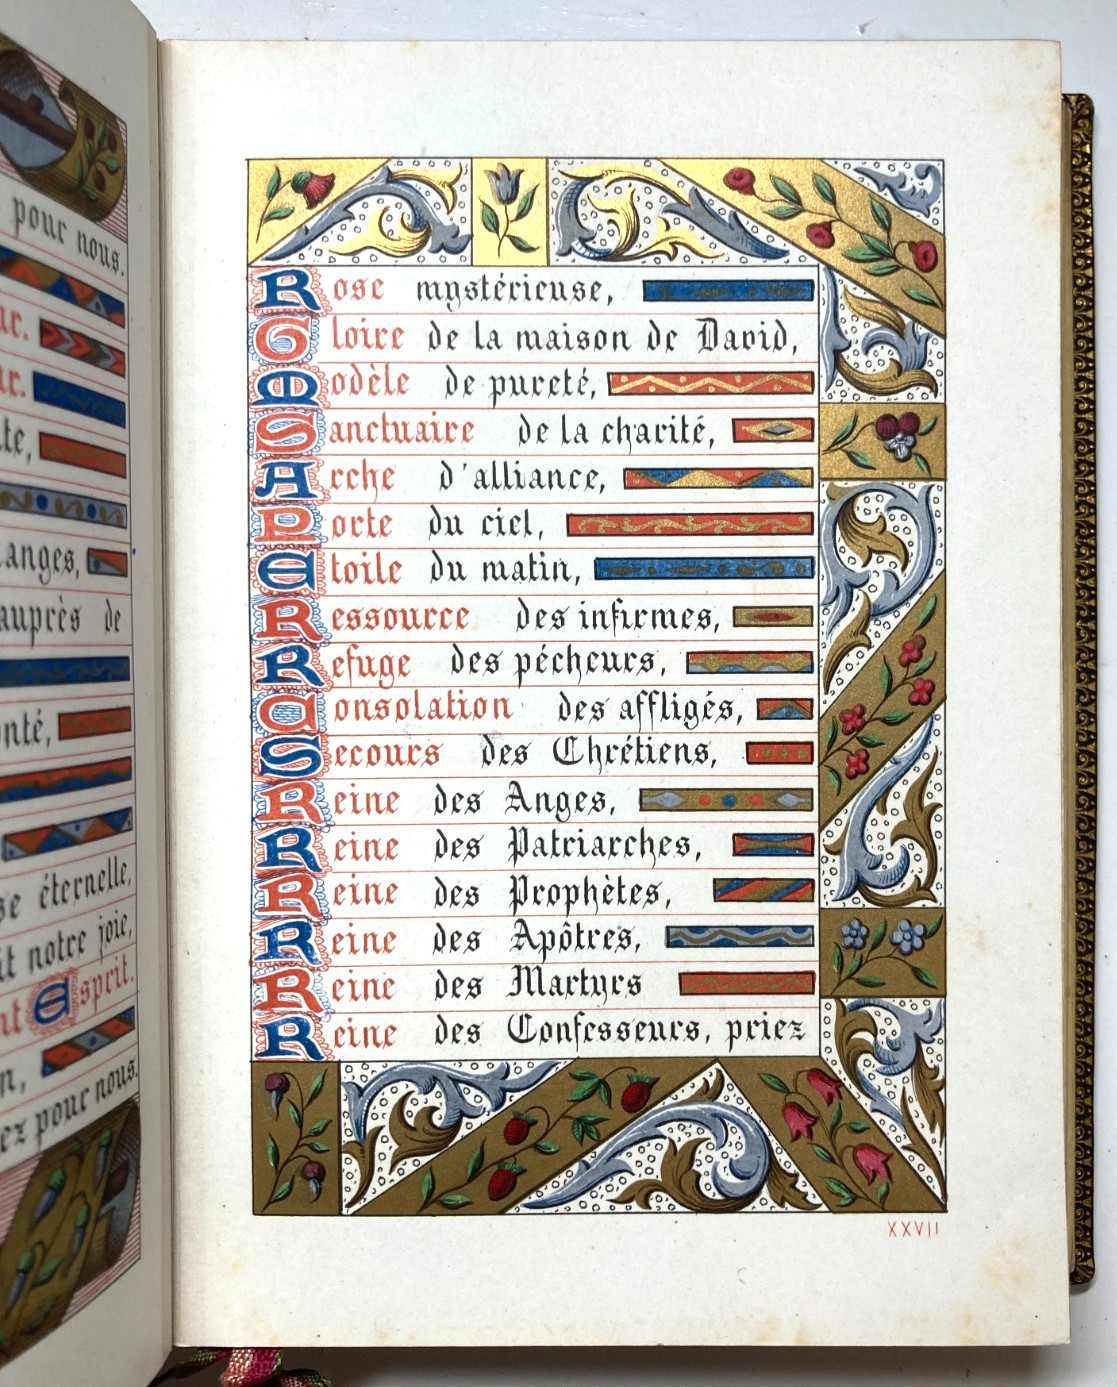 pour nous.
ur.
ur.
te,
anges,
auprès de
nté,
se éternelle,
it notre joie,
nt Esprit.
n,
ez pour nous.
Rose mystérieuse,
Gloire de la maison de David,
Modèle de pureté,
Sanctuaire de la charité,
Arche d'alliance,
Porte du ciel,
Etoile du matin,
Ressource des infirmes,
Refuge des pécheurs,
Consolation des affligés,
Secours des Chrétiens,
Reine des Anges,
Reine des Patriarches,
Reine des Prophètes,
Reine des Apôtres,
Reine des Martyrs
Reine des Confesseurs, priez
XXVII